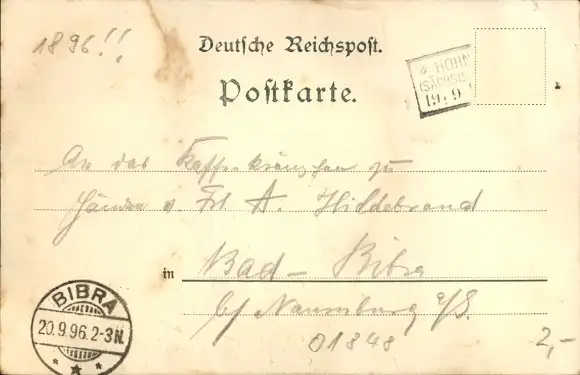 1896!!
Deutsche Reichspost.
Postkarte.
* HOHN
(SACHSE
19 9
An das Kaffeekränzchen zu
Händen v. Frl. A. Hildebrand
in Bad-Bibra
b/ Naumburg a/S.
BIBRA
20.9.96.2-3N.
01848
2,-